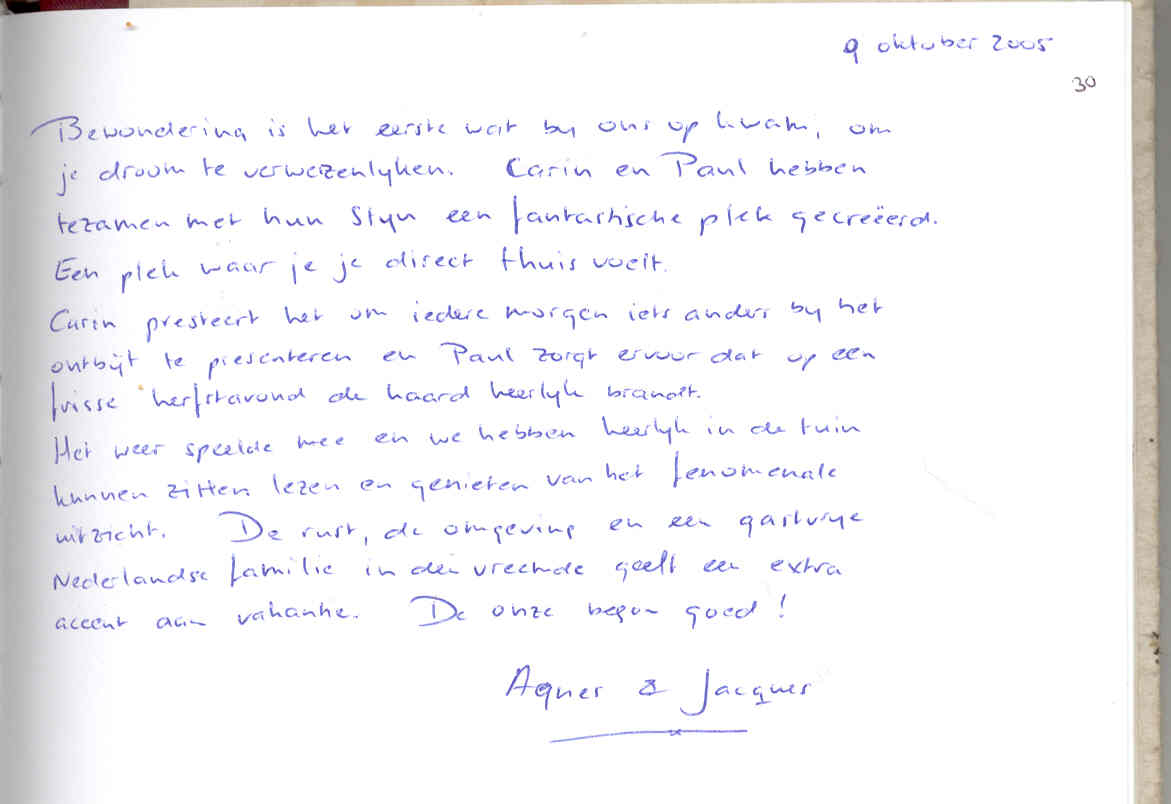 9 oktober 2005
30
Bewondering is het eerste wat by ons op kwam, om
je droom te verwezenlyken. Carin en Paul hebben
tezamen met hun Styn een fantastische plek gecreëerd.
Een plek waar je je direct thuis voelt.
Carin presteert het om iedere morgen iets anders by het
ontbijt te presenteren en Paul zorgt ervoor dat op een
frisse herfstavond de haard heerlyk brandt.
Het weer speelde mee en we hebben heerlyk in de tuin
kunnen zitten lezen en genieten van het fenomenale
uitzicht. De rust, de omgeving en een gastvrye
Nederlandse familie in den vreemde geeft een extra
accent aan vakantie. De onze begon goed!
Agnes & Jacques